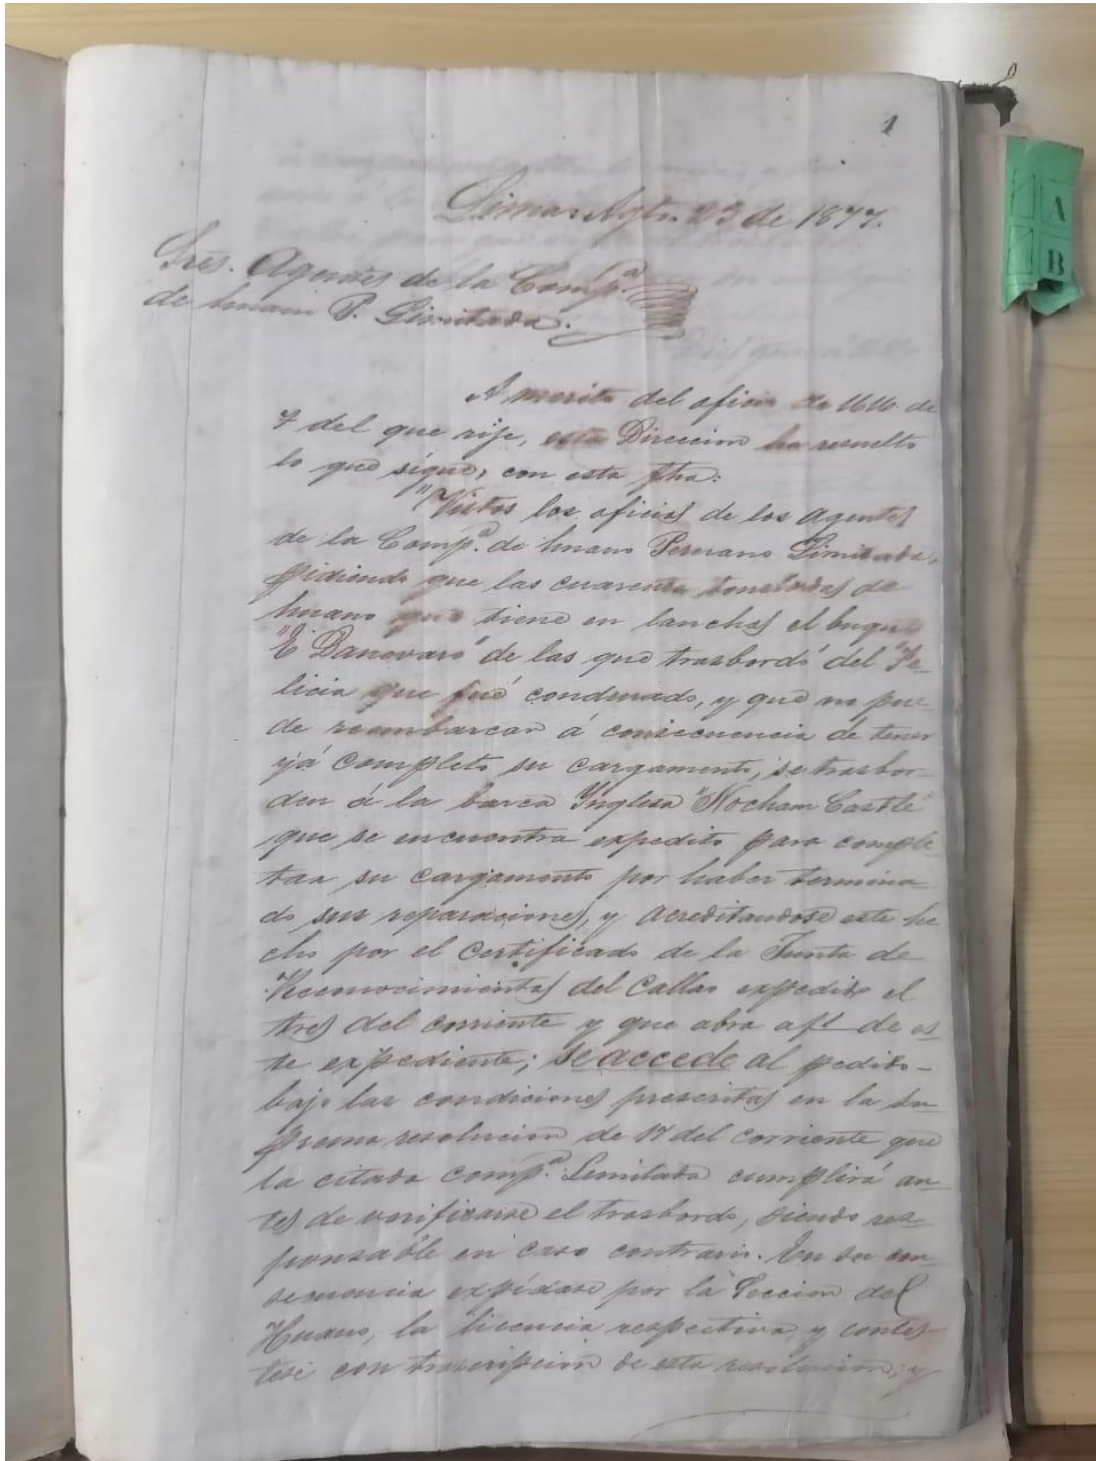 1
Lima Agto. 23 de 1877.
Sres. Agentes de la Comp.a
de huano P. Limitada.
A merito del oficio de UU. de
7 del que rije, esta Direccion ha resuelto
lo que sigue, con esta fha:
"Vistos los oficios de los Agentes
de la Comp.a de huano Peruano Limitada,
pidiendo que las cuarenta toneladas de
huano que tiene en lanchas el buque
"E Danovaro" de las que trasbordó del "Fe-
licia que fué condenado, y que no pue-
de reembarcar á consecuencia de tener
yá completo su cargamento, se trasbor-
den á la barca Ynglesa Castle"
que se encuentra expedito para comple-
tar su cargamento por haber termina-
do sus reparaciones, y acreditandose este he
cho por el certificado de la Junta de
Reconocimientos del Callao expedido el
tres del corriente y que obra á f1 de es-
te expediente; se accede al pedido-
bajo las condiciones prescritas en la Su-
prema resolucion de 17 del corriente que
la citada Comp.a Limitada cumplirá an-
tes de verificarse el trasbordo, siendo res-
ponsable en caso contrario. En su con-
secuencia expídase por la Seccion del
Huano, la licencia respectiva, y contes-
tese con trascripcion de esta resolucion; y
A
B